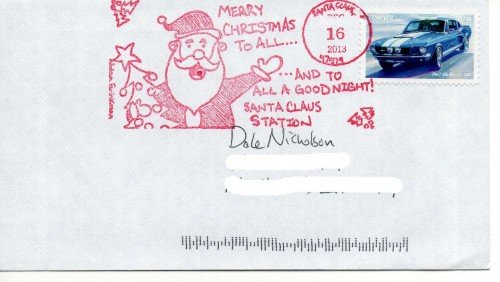 MERRY
CHRISTMAS
TO ALL...
...AND TO
ALL A GOOD NIGHT!
SANTA CLAUS
STATION
SANTA CLAUS
DEC
16
2013
47579
FOREVER
USA
1967 Shelby GT-500
Dale Nicholson